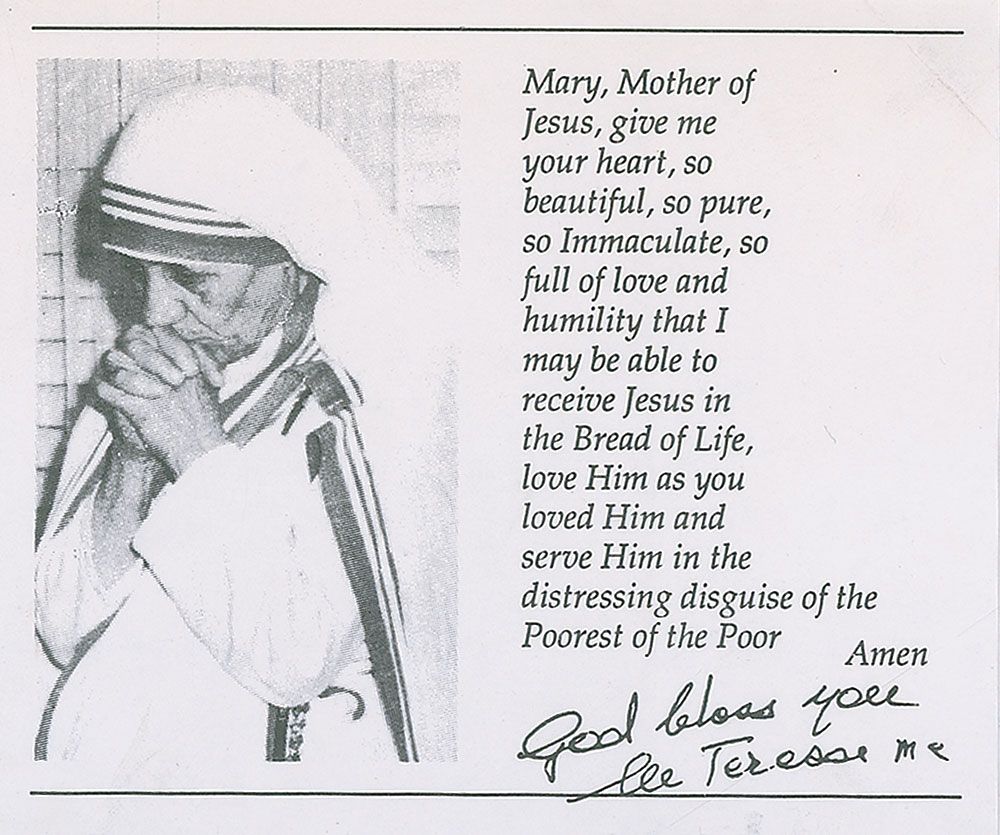 Mary, Mother of
Jesus, give me
your heart, so
beautiful, so pure,
so Immaculate, so
full of love and
humility that I
may be able to
receive Jesus in
the Bread of Life,
love Him as you
loved Him and
serve Him in the
distressing disguise of the
Poorest of the Poor
Amen
God bless you
lle Teresa mc